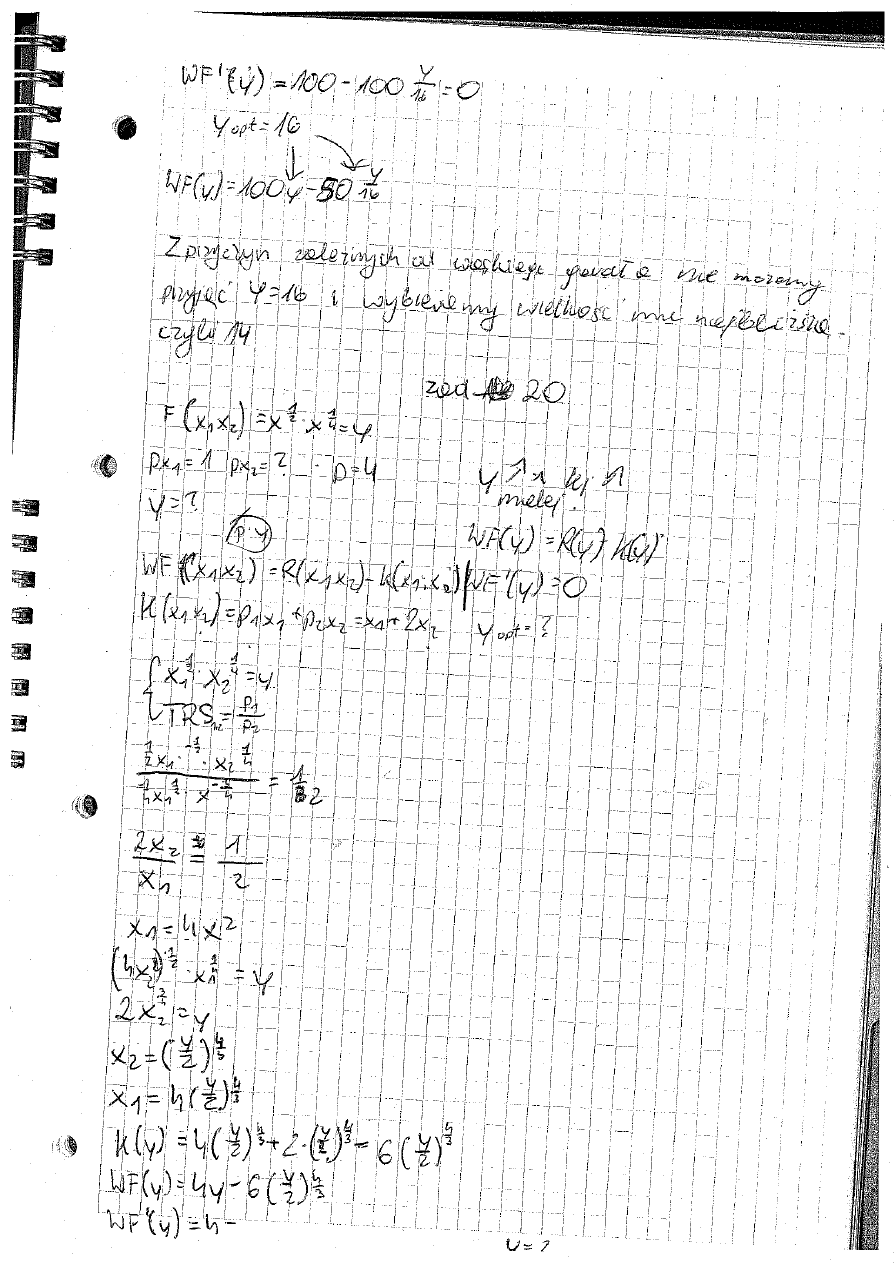 WF'(y) = 100 - 100 y/16 = 0
y opt = 16
WF(y) = 100y - 50 y/16
Z przyczyn zależnych od wąskiego gardła nie możemy
przyjąć y=16 i wybieramy wielkość mu najbliższą
czyli 14
zad 20
F(x₁x₂) = x^½ · x^¼ = y
px₁ = 1 px₂ = ? p = 4
y = ?
y ↗ kj ↑
mniej
p·y
WF(y) = R(y) - K(y)
WF(x₁x₂) = R(x₁x₂) - K(x₁,x₂) | WF'(y) = 0
K(x₁x₂) = p₁x₁ + p₂x₂ = x₁ + 2x₂ y opt = ?
{ x₁^½ · x₂^¼ = y
TRS = p₁/p₂
(½x₁^-½ · x₂^¼)/(¼x₁^½ · x^-¾) = 1/2
2x₂/x₁ = 1/2
x₁ = 4x2
(4x₂)^½ · x^¼ = y
2x₂^¾ = y
x₂ = (y/2)^4/3
x₁ = 4(y/2)^4/3
K(y) = 4(y/2)^4/3 + 2·(y/2)^4/3 = 6(y/2)^4/3
WF(y) = 4y - 6(y/2)^4/3
WF'(y) = 4 -
y = ?